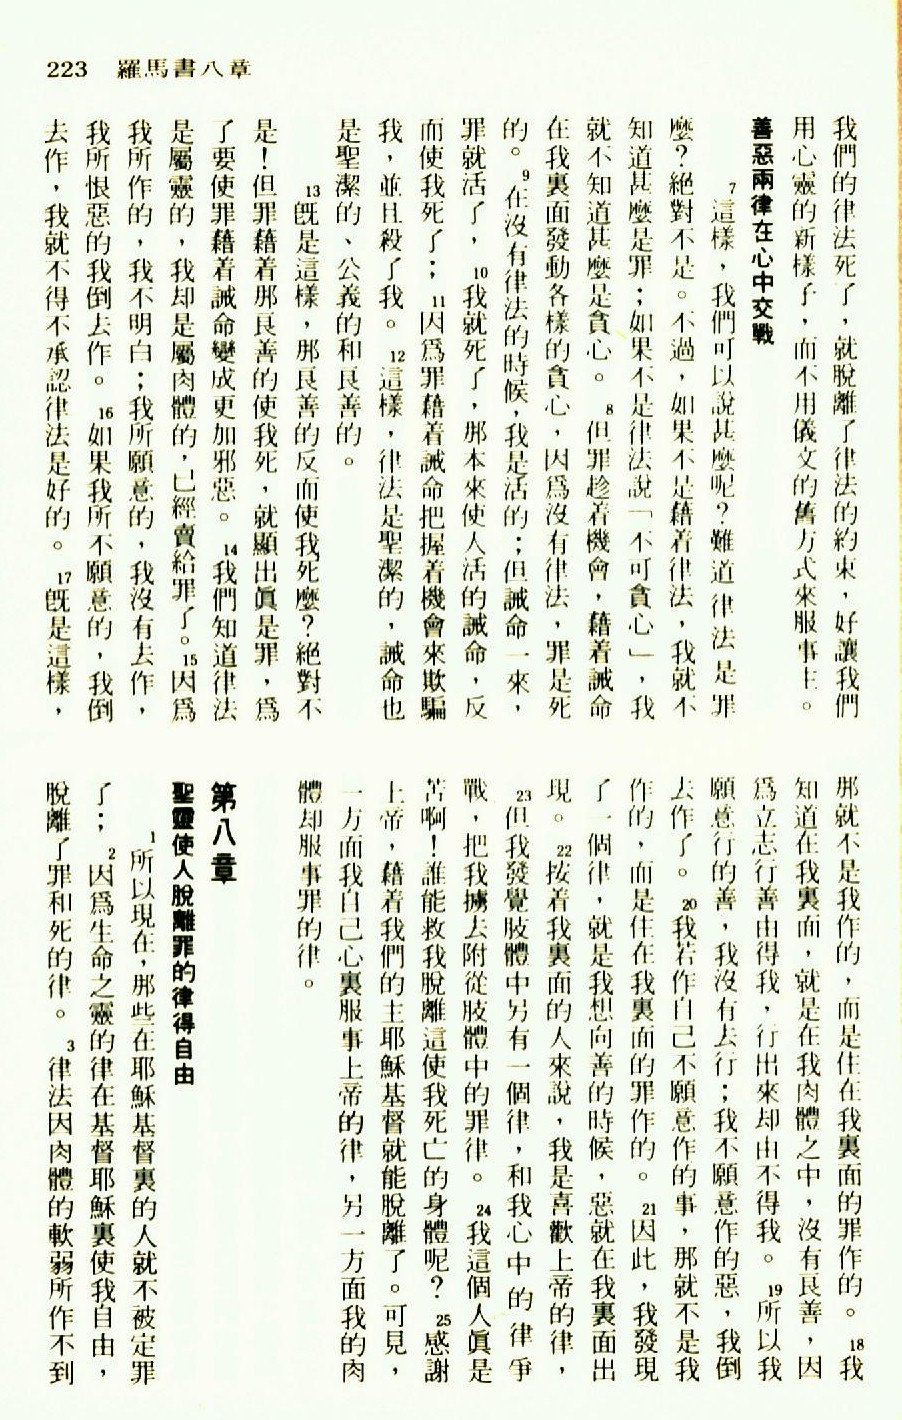 223 羅馬書八章
我們的律法死了，就脫離了律法的約束，好讓我們
用心靈的新樣子，而不用儀文的舊方式來服事主。
善惡兩律在心中交戰
7這樣，我們可以說甚麼呢？難道律法是罪
麼？絕對不是。不過，如果不是藉着律法，我就不
知道甚麼是罪；如果不是律法說「不可貪心」，我
就不知道甚麼是貪心。8但罪趁着機會，藉着誡命
在我裏面發動各樣的貪心，因爲沒有律法，罪是死
的。9在沒有律法的時候，我是活的；但誡命一來，
罪就活了，10我就死了，那本來使人活的誡命，反
而使我死了；11因爲罪藉着誡命把握着機會來欺騙
我，並且殺了我。12這樣，律法是聖潔的，誡命也
是聖潔的、公義的和良善的。
13旣是這樣，那良善的反而使我死麼？絕對不
是！但罪藉着那良善的使我死，就顯出眞是罪，爲
了要使罪藉着誡命變成更加邪惡。14我們知道律法
是屬靈的，我却是屬肉體的，已經賣給罪了。15因爲
我所作的，我不明白；我所願意的，我沒有去作，
我所恨惡的我倒去作。16如果我所不願意的，我倒
去作，我就不得不承認律法是好的。17旣是這樣，
那就不是我作的，而是住在我裏面的罪作的。18我
知道在我裏面，就是在我肉體之中，沒有良善，因
爲立志行善由得我，行出來却由不得我。19所以我
願意行的善，我沒有去行；我不願意作的惡，我倒
去作了。20我若作自己不願意作的事，那就不是我
作的，而是住在我裏面的罪作的。21因此，我發現
了一個律，就是我想向善的時候，惡就在我裏面出
現。22按着我裏面的人來說，我是喜歡上帝的律，
23但我發覺肢體中另有一個律，和我心中的律爭
戰，把我擄去附從肢體中的罪律。24我這個人眞是
苦啊！誰能救我脫離這使我死亡的身體呢？25感謝
上帝，藉着我們的主耶穌基督就能脫離了。可見，
一方面我自己心裏服事上帝的律，另一方面我的肉
體却服事罪的律。
第八章
聖靈使人脫離罪的律得自由
1所以現在，那些在耶穌基督裏的人就不被定罪
了；2因爲生命之靈的律在基督耶穌裏使我自由，
脫離了罪和死的律。3律法因肉體的軟弱所作不到